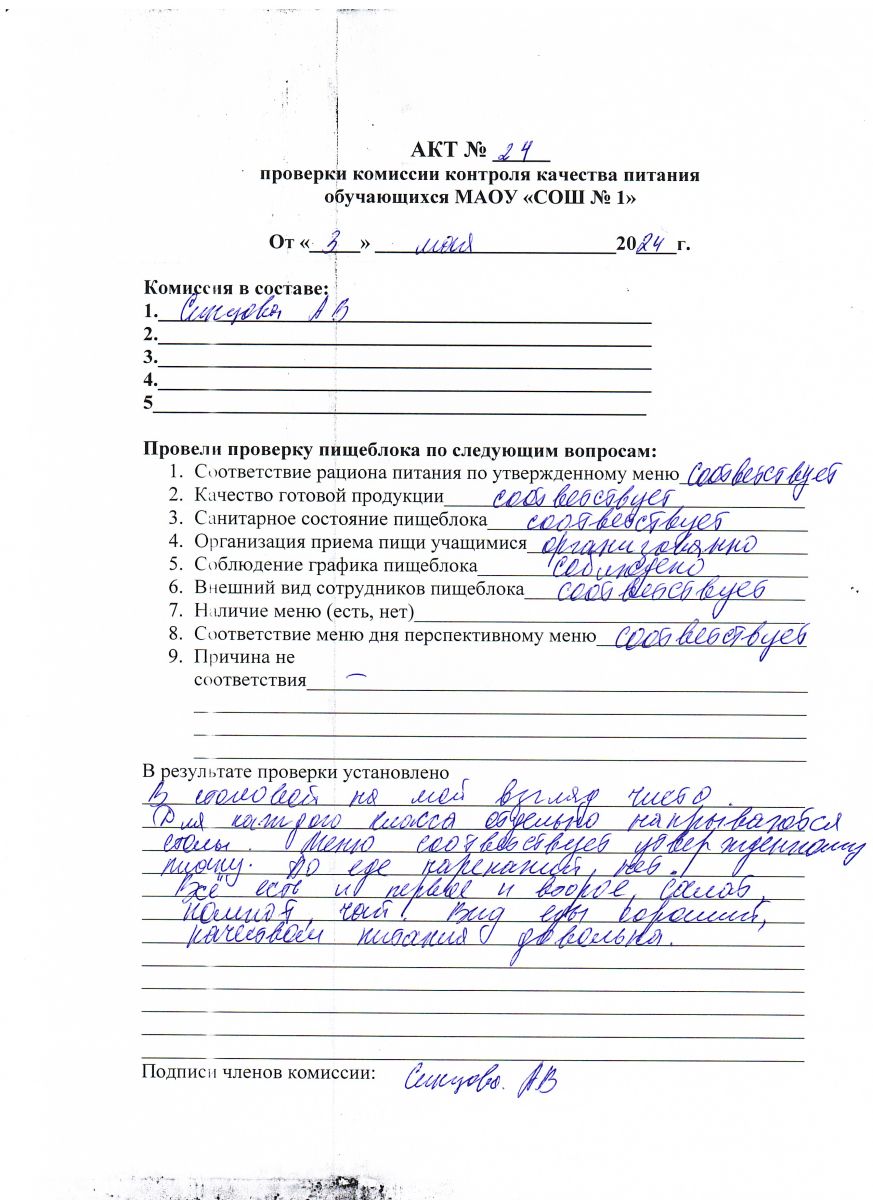 АКТ № 24
проверки комиссии контроля качества питания
обучающихся МАОУ «СОШ № 1»
От « 3 » мая 2024 г.
Комиссия в составе:
1. Синцова А В
2.
3.
4.
5
Провели проверку пищеблока по следующим вопросам:
1. Соответствие рациона питания по утвержденному меню соответствует
2. Качество готовой продукции соответствует
3. Санитарное состояние пищеблока соответствует
4. Организация приема пищи учащимися организованно
5. Соблюдение графика пищеблока соблюдено
6. Внешний вид сотрудников пищеблока соответствует
7. Наличие меню (есть, нет)
8. Соответствие меню дня перспективному меню соответствует
9. Причина не
соответствия –
В результате проверки установлено
В столовой на мой взгляд чисто.
Для каждого класса отдельно накрываются
столы. Меню соответствует утвержденному
плану. По еде нареканий нет.
Всё есть и первое и второе, салат,
компот, чай. Вид еды хороший,
качеством питания довольна.
Подписи членов комиссии: Синцова. АВ